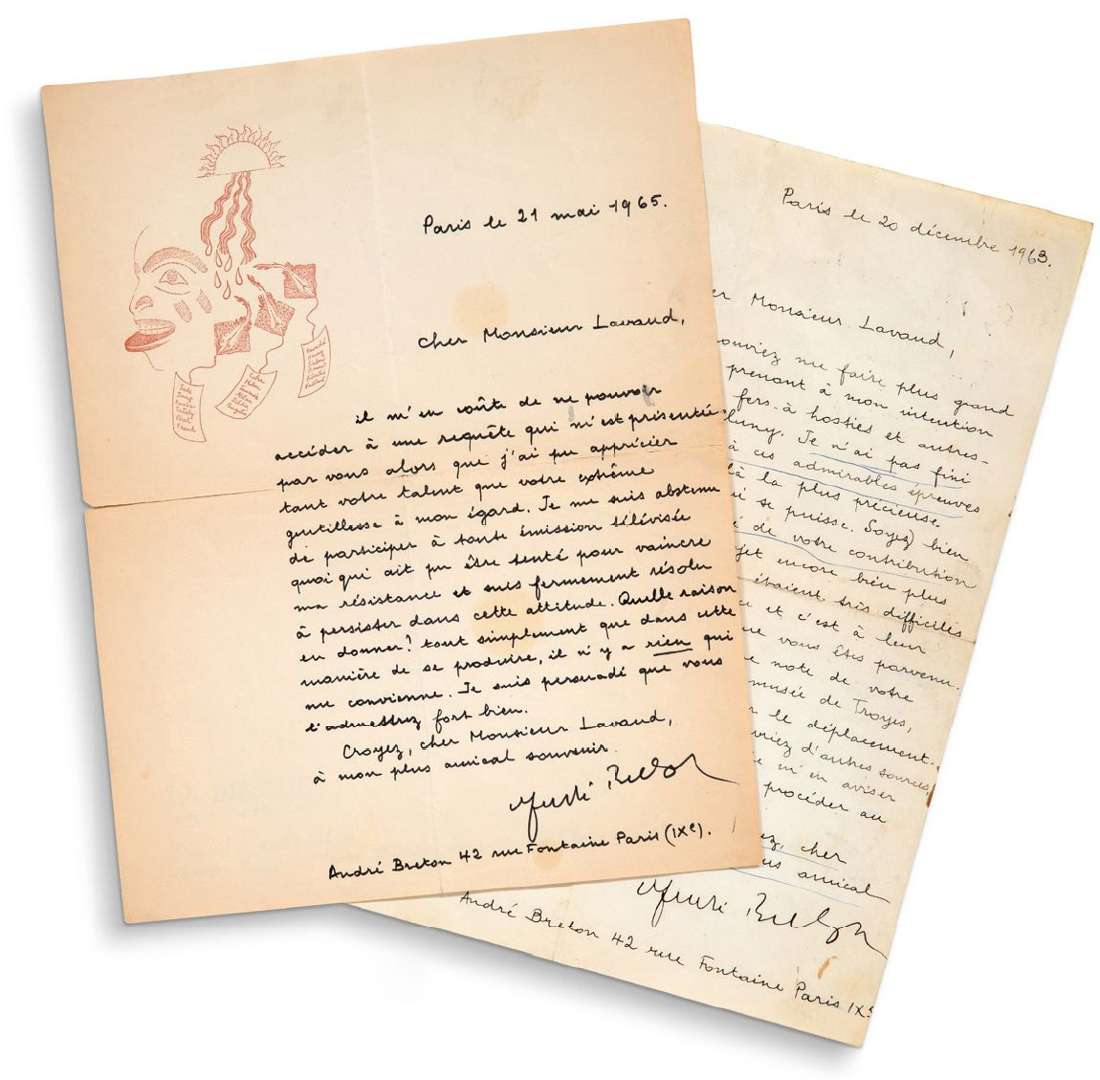 Paris le 21 mai 1965.
Cher Monsieur Lavaud,
il m'en coûte de ne pouvoir
accéder à une requête qui m'est présentée
par vous alors que j'ai pu apprécier
tant votre talent que votre extrême
gentillesse à mon égard. Je me suis abstenu
de participer à toute émission télévisée
quoi qui ait pu être tenté pour vaincre
ma résistance et suis fermement résolu
à persister dans cette attitude. Quelle raison
en donner? tout simplement que dans cette
manière de se produire, il n'y a rien qui
me convienne. Je suis persuadé que vous
l'admettrez fort bien.
Croyez, cher Monsieur Lavaud,
à mon plus amical souvenir.
André Breton
André Breton 42 rue Fontaine Paris (IXe).
Paris le 20 décembre 1963.
er Monsieur Lavaud,
ouviez me faire plus grand
prenant à mon intention
fers-à hosties et autres-
luny. Je n'ai pas fini
à ces admirables épreuves
là la plus précieuse
ui se puisse. Soyez bien
é de votre contribution
jet encore bien plus
étaient très difficiles
ce et c'est à leur
ue vous êtes parvenu.
e note de votre
musée de Troyes,
r le déplacement.
vriez d'autres sources,
e m'en aviser
procéder au
ez, cher
us amical
André Breton
André Breton 42 rue Fontaine Paris IXe